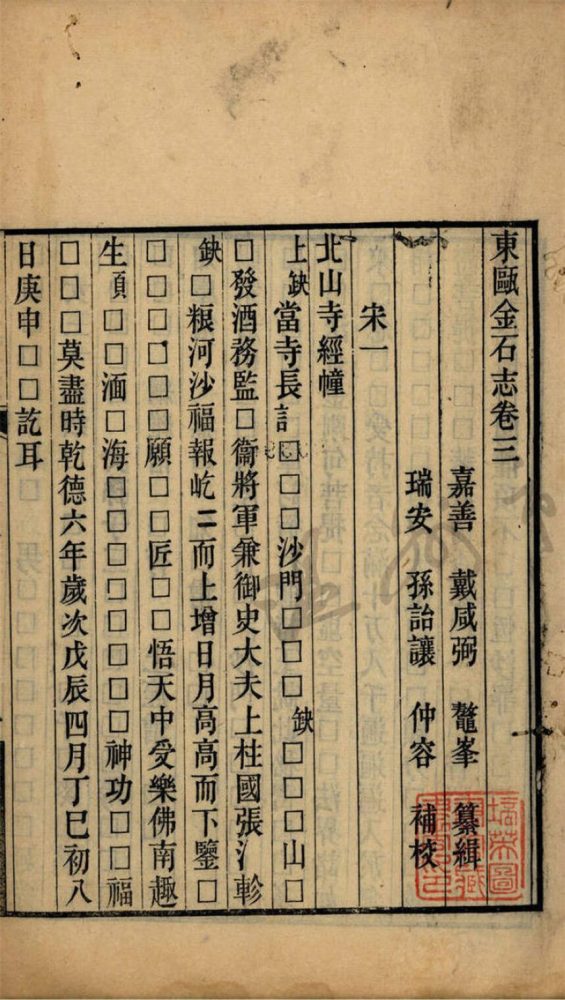 東甌金石志卷三
嘉善 戴咸弼 鼇峯 纂緝
瑞安 孫詒讓 仲容 補校
宋一
北山寺經幢
上缺當寺長訁□□□□沙門□□□缺□□□□山□
□發酒務監□衞將軍兼御史大夫上柱國張氵軫
缺□粮河沙福報屹二而上增日月高高而下鑒□
□□□□□□願□□匠□□悟天中受樂佛南趣
生頂□□湎□海□□□□□□□□神功□□□福
□□□莫盡時乾德六年歲次戊辰四月丁巳初八
日庚申□□訖耳